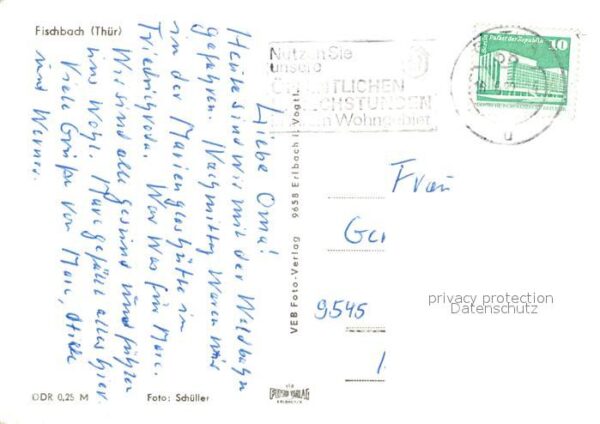 Fischbach (Thür)
Liebe Oma!
Heute sind wir mit der Waldbahn
gefahren. Nachmittag waren wir
in der Marienglashütte in
Friedrichroda. War was für Marc.
Wir sind alle gesund und fühlen
uns wohl. Marc gefällt alles hier.
Viele Grüße von Marc,
und Werner.
DDR 0,25 M
Foto: Schüller
VEB Foto-Verlag 9658 Erlbach i. Vogtl.
Nutzen Sie
unsere
ÖFFENTLICHEN
SPRECHSTUNDEN
Wohngebiet
u
Palast der Republik
10
Frau
Ger
9545
privacy protection
Datenschutz